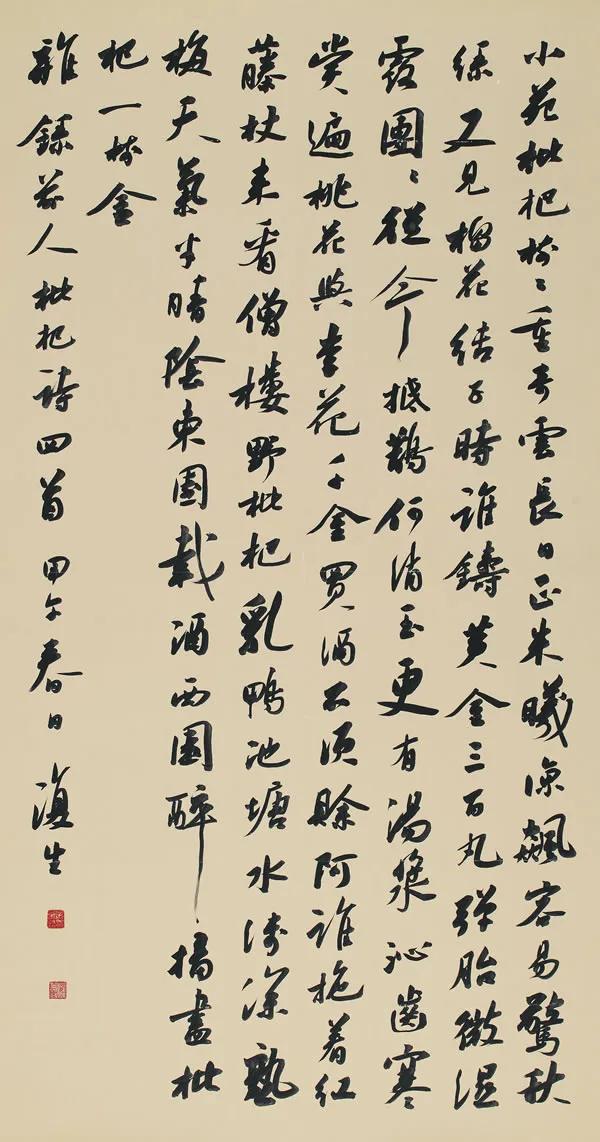 小苑枇杷樹〻垂青雲長日正朱曦涼飆容易驚秋
綠又見榴花結子時誰鑄黃金三百丸彈胎微濕
露團〻從今抵鵲何消玉更有湯漿沁齒寒
賞遍桃花與李花千金買酒不須賒阿誰拖着紅
藤杖來看僧樓野枇杷乳鴨池塘水淺深熟
梅天氣半晴陰東園載酒西園醉摘盡枇
杷一樹金
雜錄前人枇杷詩四首 甲午春日 生